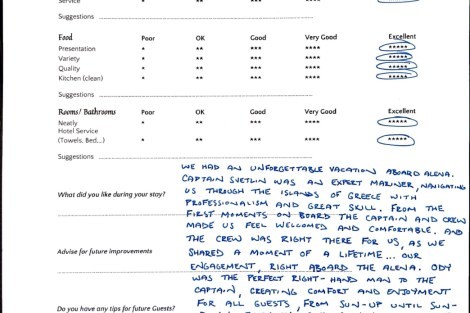 Service * ** *** **** *****
Suggestions
Food Poor OK Good Very Good Excellent
Presentation * ** *** **** *****
Variety * ** *** **** *****
Quality * ** *** **** *****
Kitchen (clean) * ** *** **** *****
Suggestions
Rooms/ Bathrooms Poor OK Good Very Good Excellent
Neatly * ** *** **** *****
Hotel Service
(Towels, Bed...) * ** *** **** *****
Suggestions
WE HAD AN UNFORGETTABLE VACATION ABOARD ALENA.
CAPTAIN SVETLIN WAS AN EXPERT MARINER, NAVIGATING
What did you like during your stay? US THROUGH THE ISLANDS OF GREECE WITH
PROFESSIONALISM AND GREAT SKILL. FROM THE
FIRST MOMENTS ON BOARD THE CAPTAIN AND CREW
MADE US FEEL WELCOMED AND COMFORTABLE. AND
THE CREW WAS RIGHT THERE FOR US, AS WE
Advise for future improvements SHARED A MOMENT OF A LIFETIME... OUR
ENGAGEMENT, RIGHT ABOARD THE ALENA. ODY
WAS THE PERFECT RIGHT-HAND MAN TO THE
CAPTAIN, CREATING COMFORT AND ENJOYMENT
FOR ALL GUESTS, FROM SUN-UP UNTIL SUN-
Do you have any tips for future Guests?